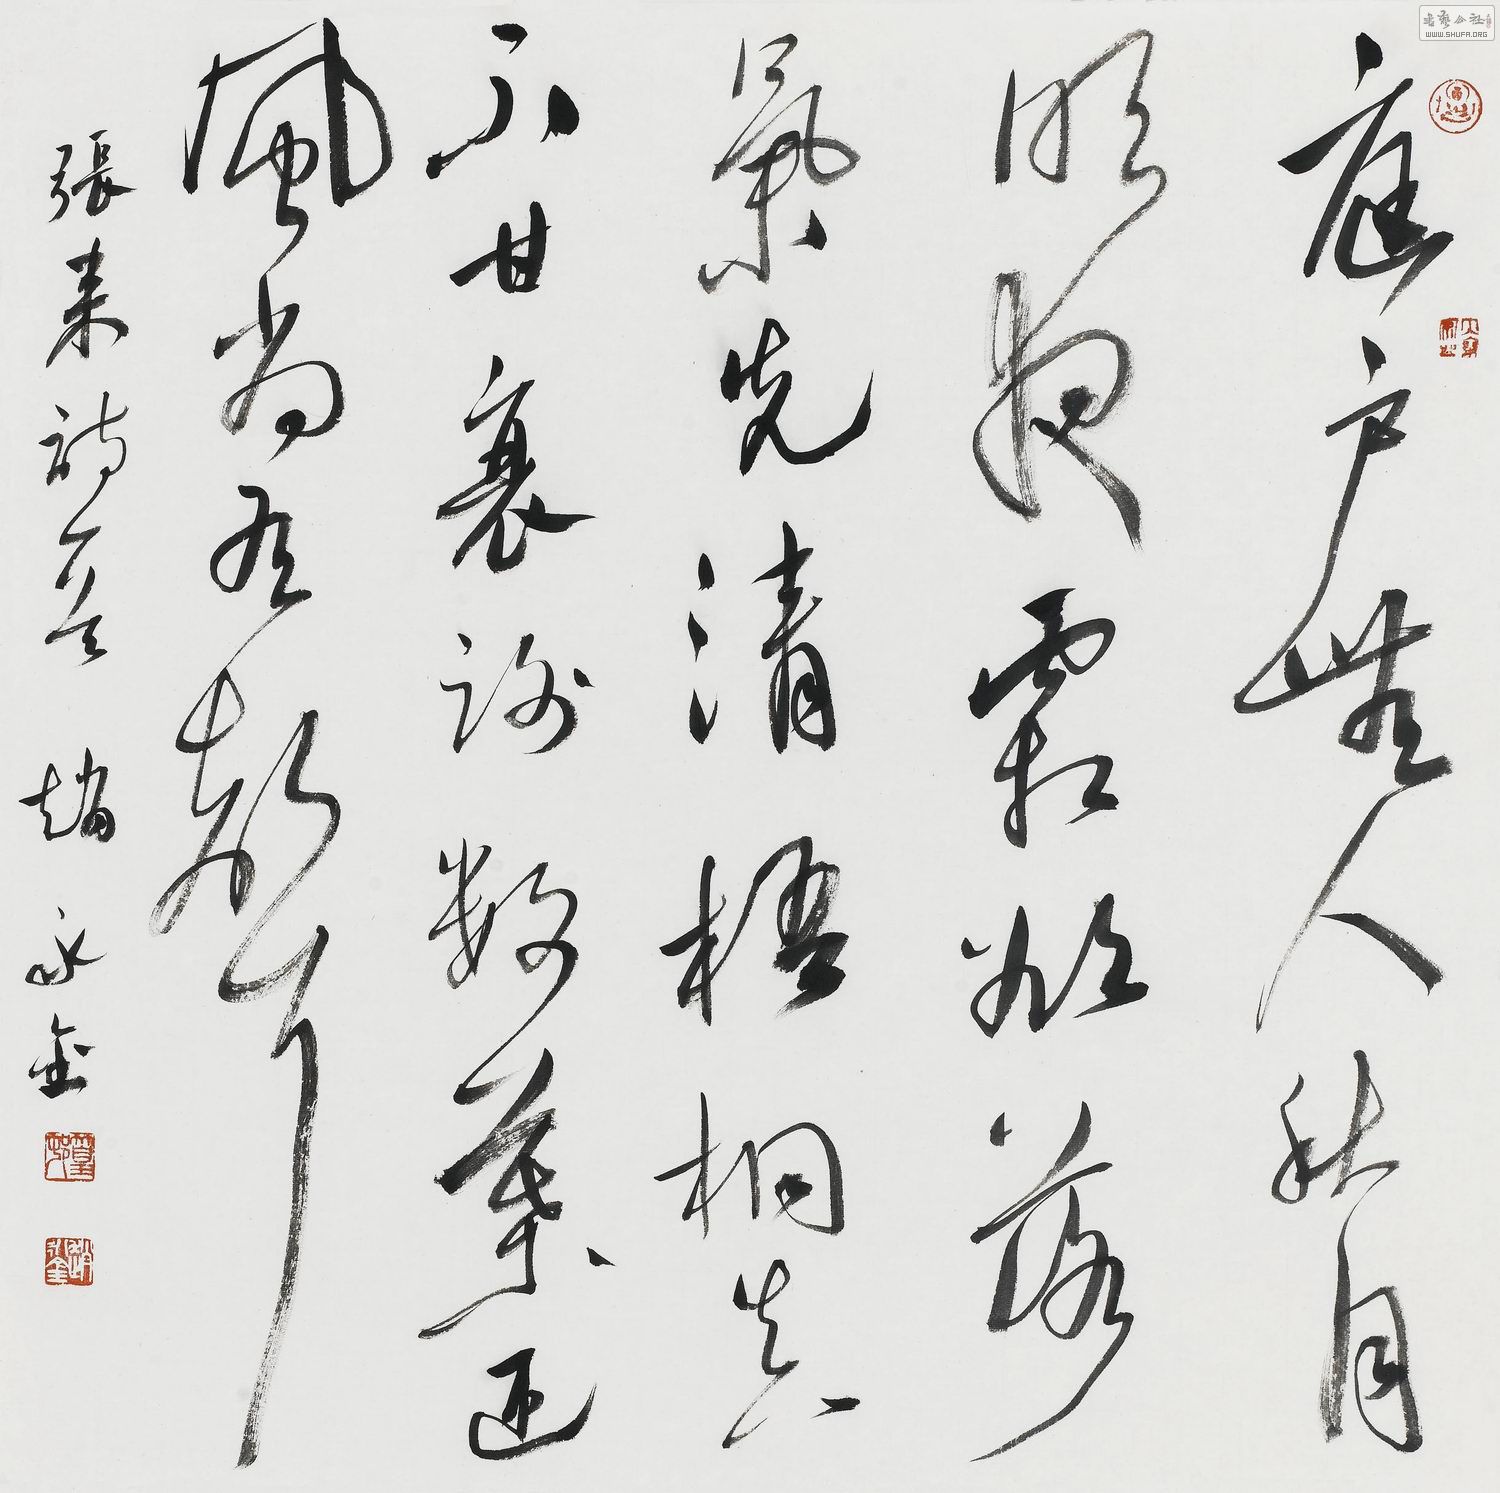 庭户無人秋月
明夜霜欲落
氣先清梧桐真
不甘衰謝数葉迎
風尚有聲
張耒詩一首 趙永金
書藝公社
WWW.SHUFA.ORG